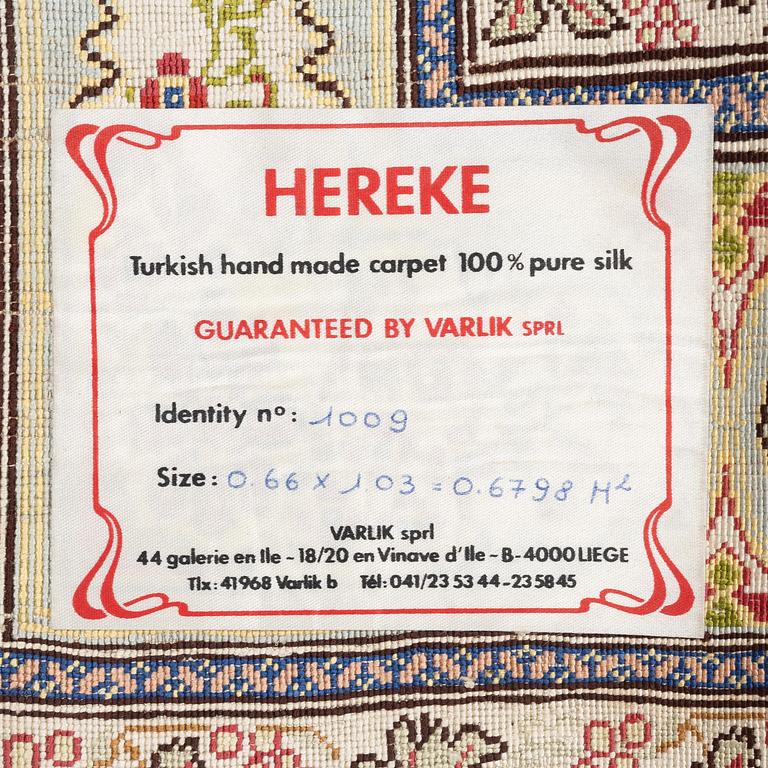 HEREKE
Turkish hand made carpet 100% pure silk
GUARANTEED BY VARLIK SPRL
Identity n°: 1009
Size: 0.66 x 1.03 = 0.6798 M²
VARLIK sprl
44 galerie en Ile - 18/20 en Vinave d'Ile - B-4000 LIEGE
Tlx: 41968 Varlik b Tél: 041/23 53 44-23 58 45